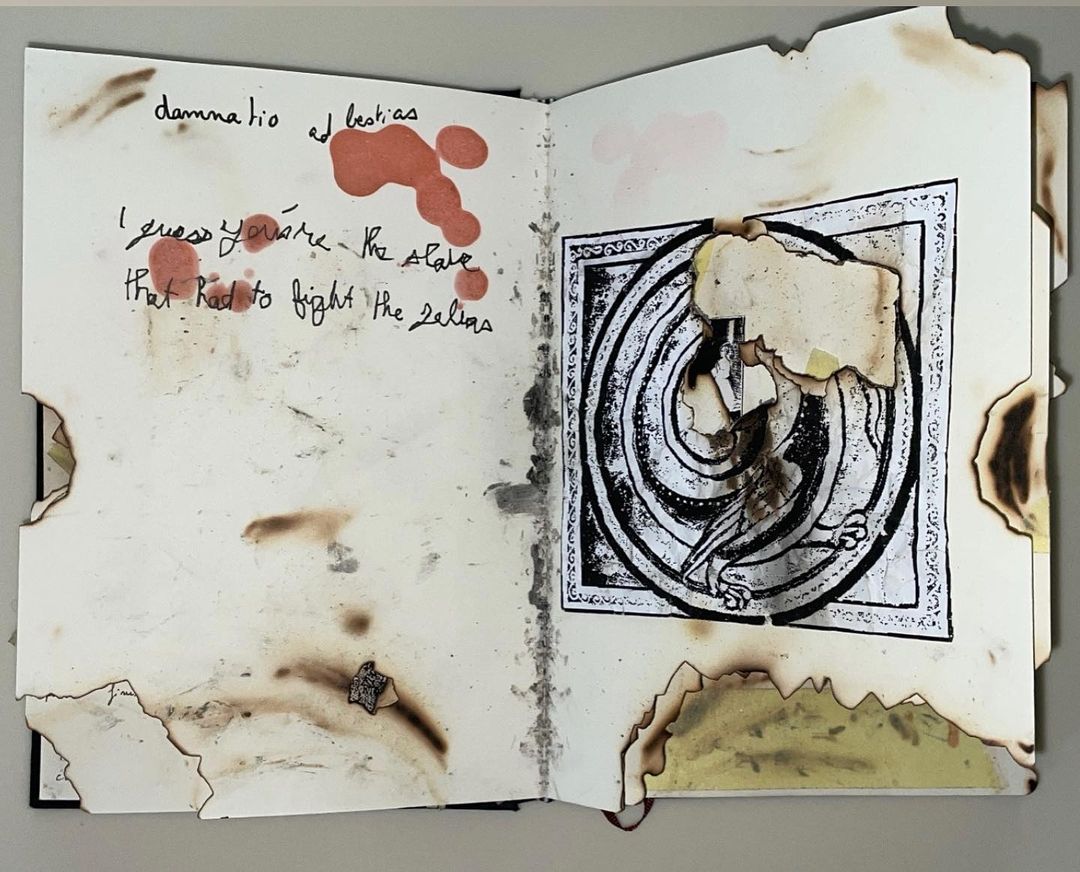 damnatio ad bestias
I guess you're the slave
that had to fight the